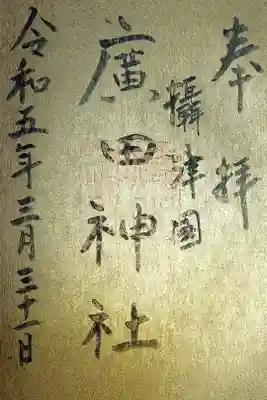 奉拝
攝津国
廣田神社
令和五年三月三十一日